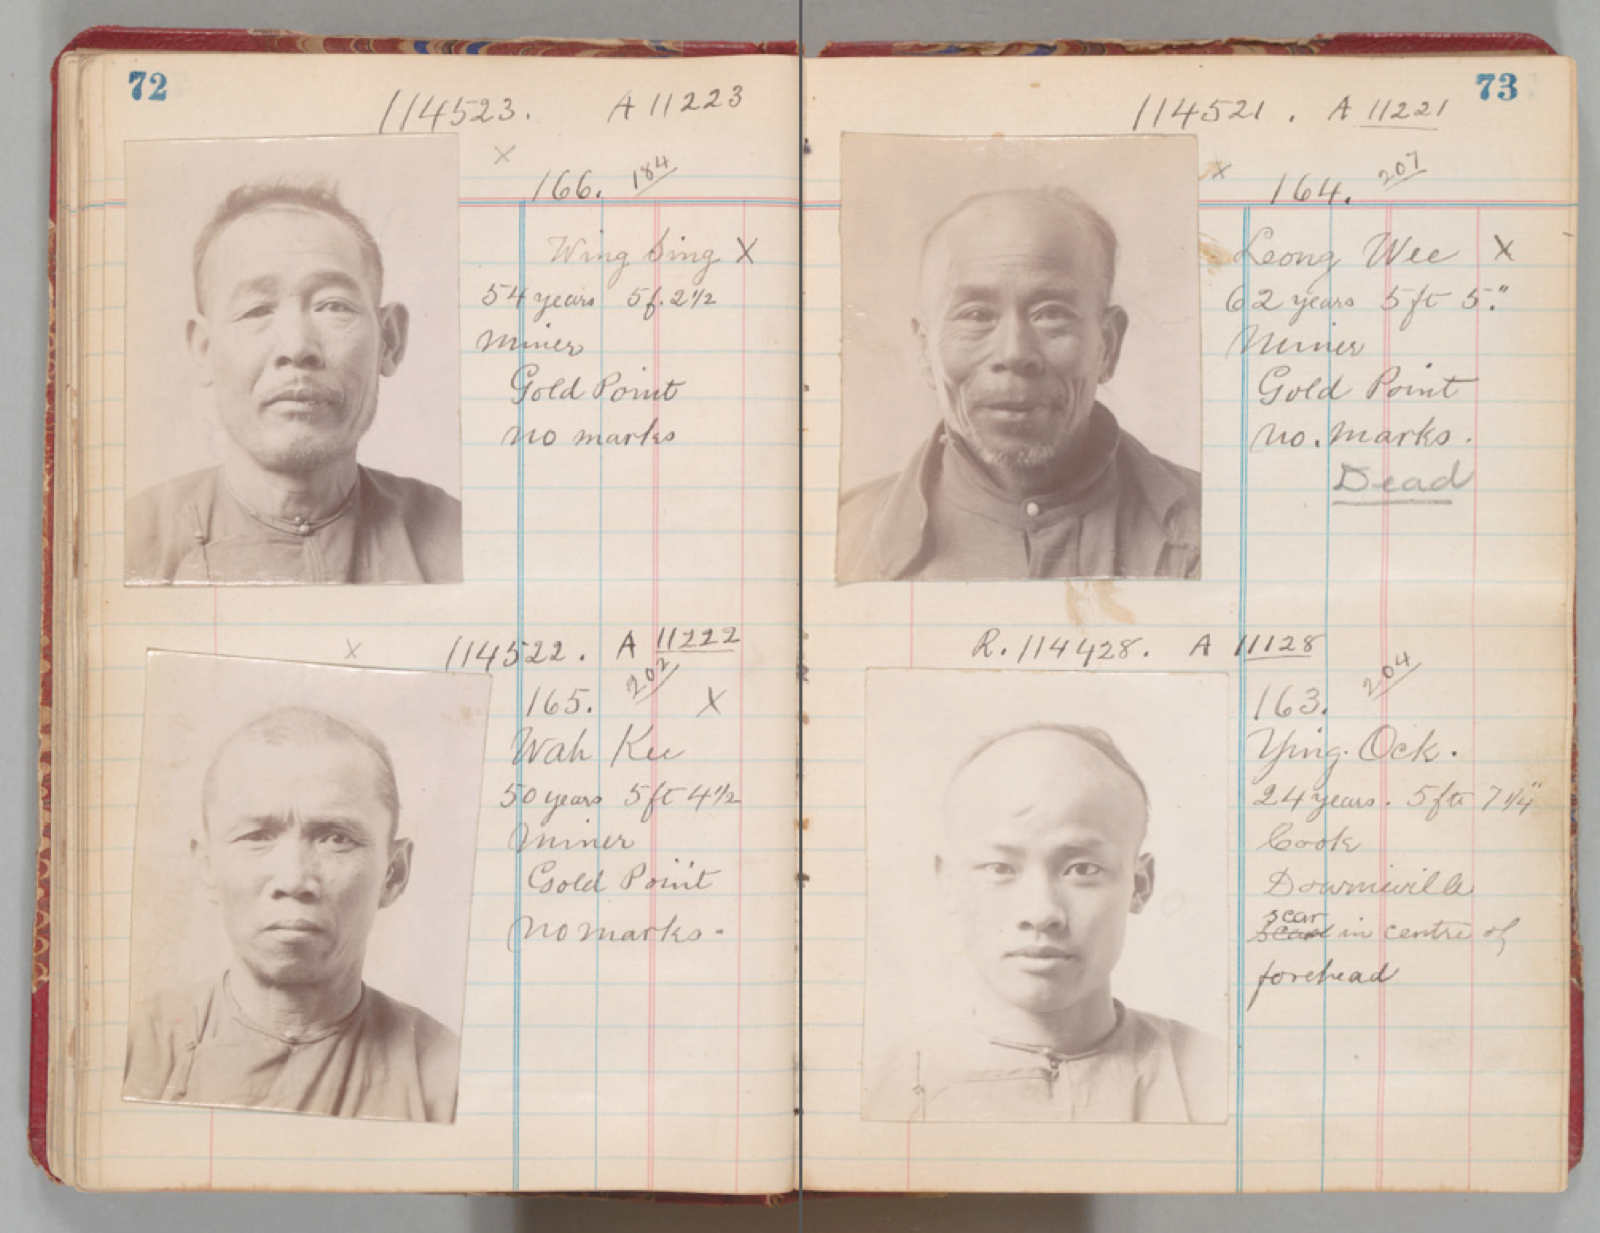 72
114523. A 11223
X
166. 184
Wing Sing X
54 years 5f. 2½
miner
Gold Point
no marks
X 114522. A 11222
165. 202 X
Wah Kee
50 years 5ft 4½
miner
Gold Point
No marks.
73
114521. A 11221
X
164. 207
Leong Wee X
62 years 5 ft 5."
Miner
Gold Point
no. marks.
Dead
R. 114428. A 11128
163. 204
Ying Ock.
24 years. 5 fts 7¼"
Cook
Downieville
scar
in centre of
forehead